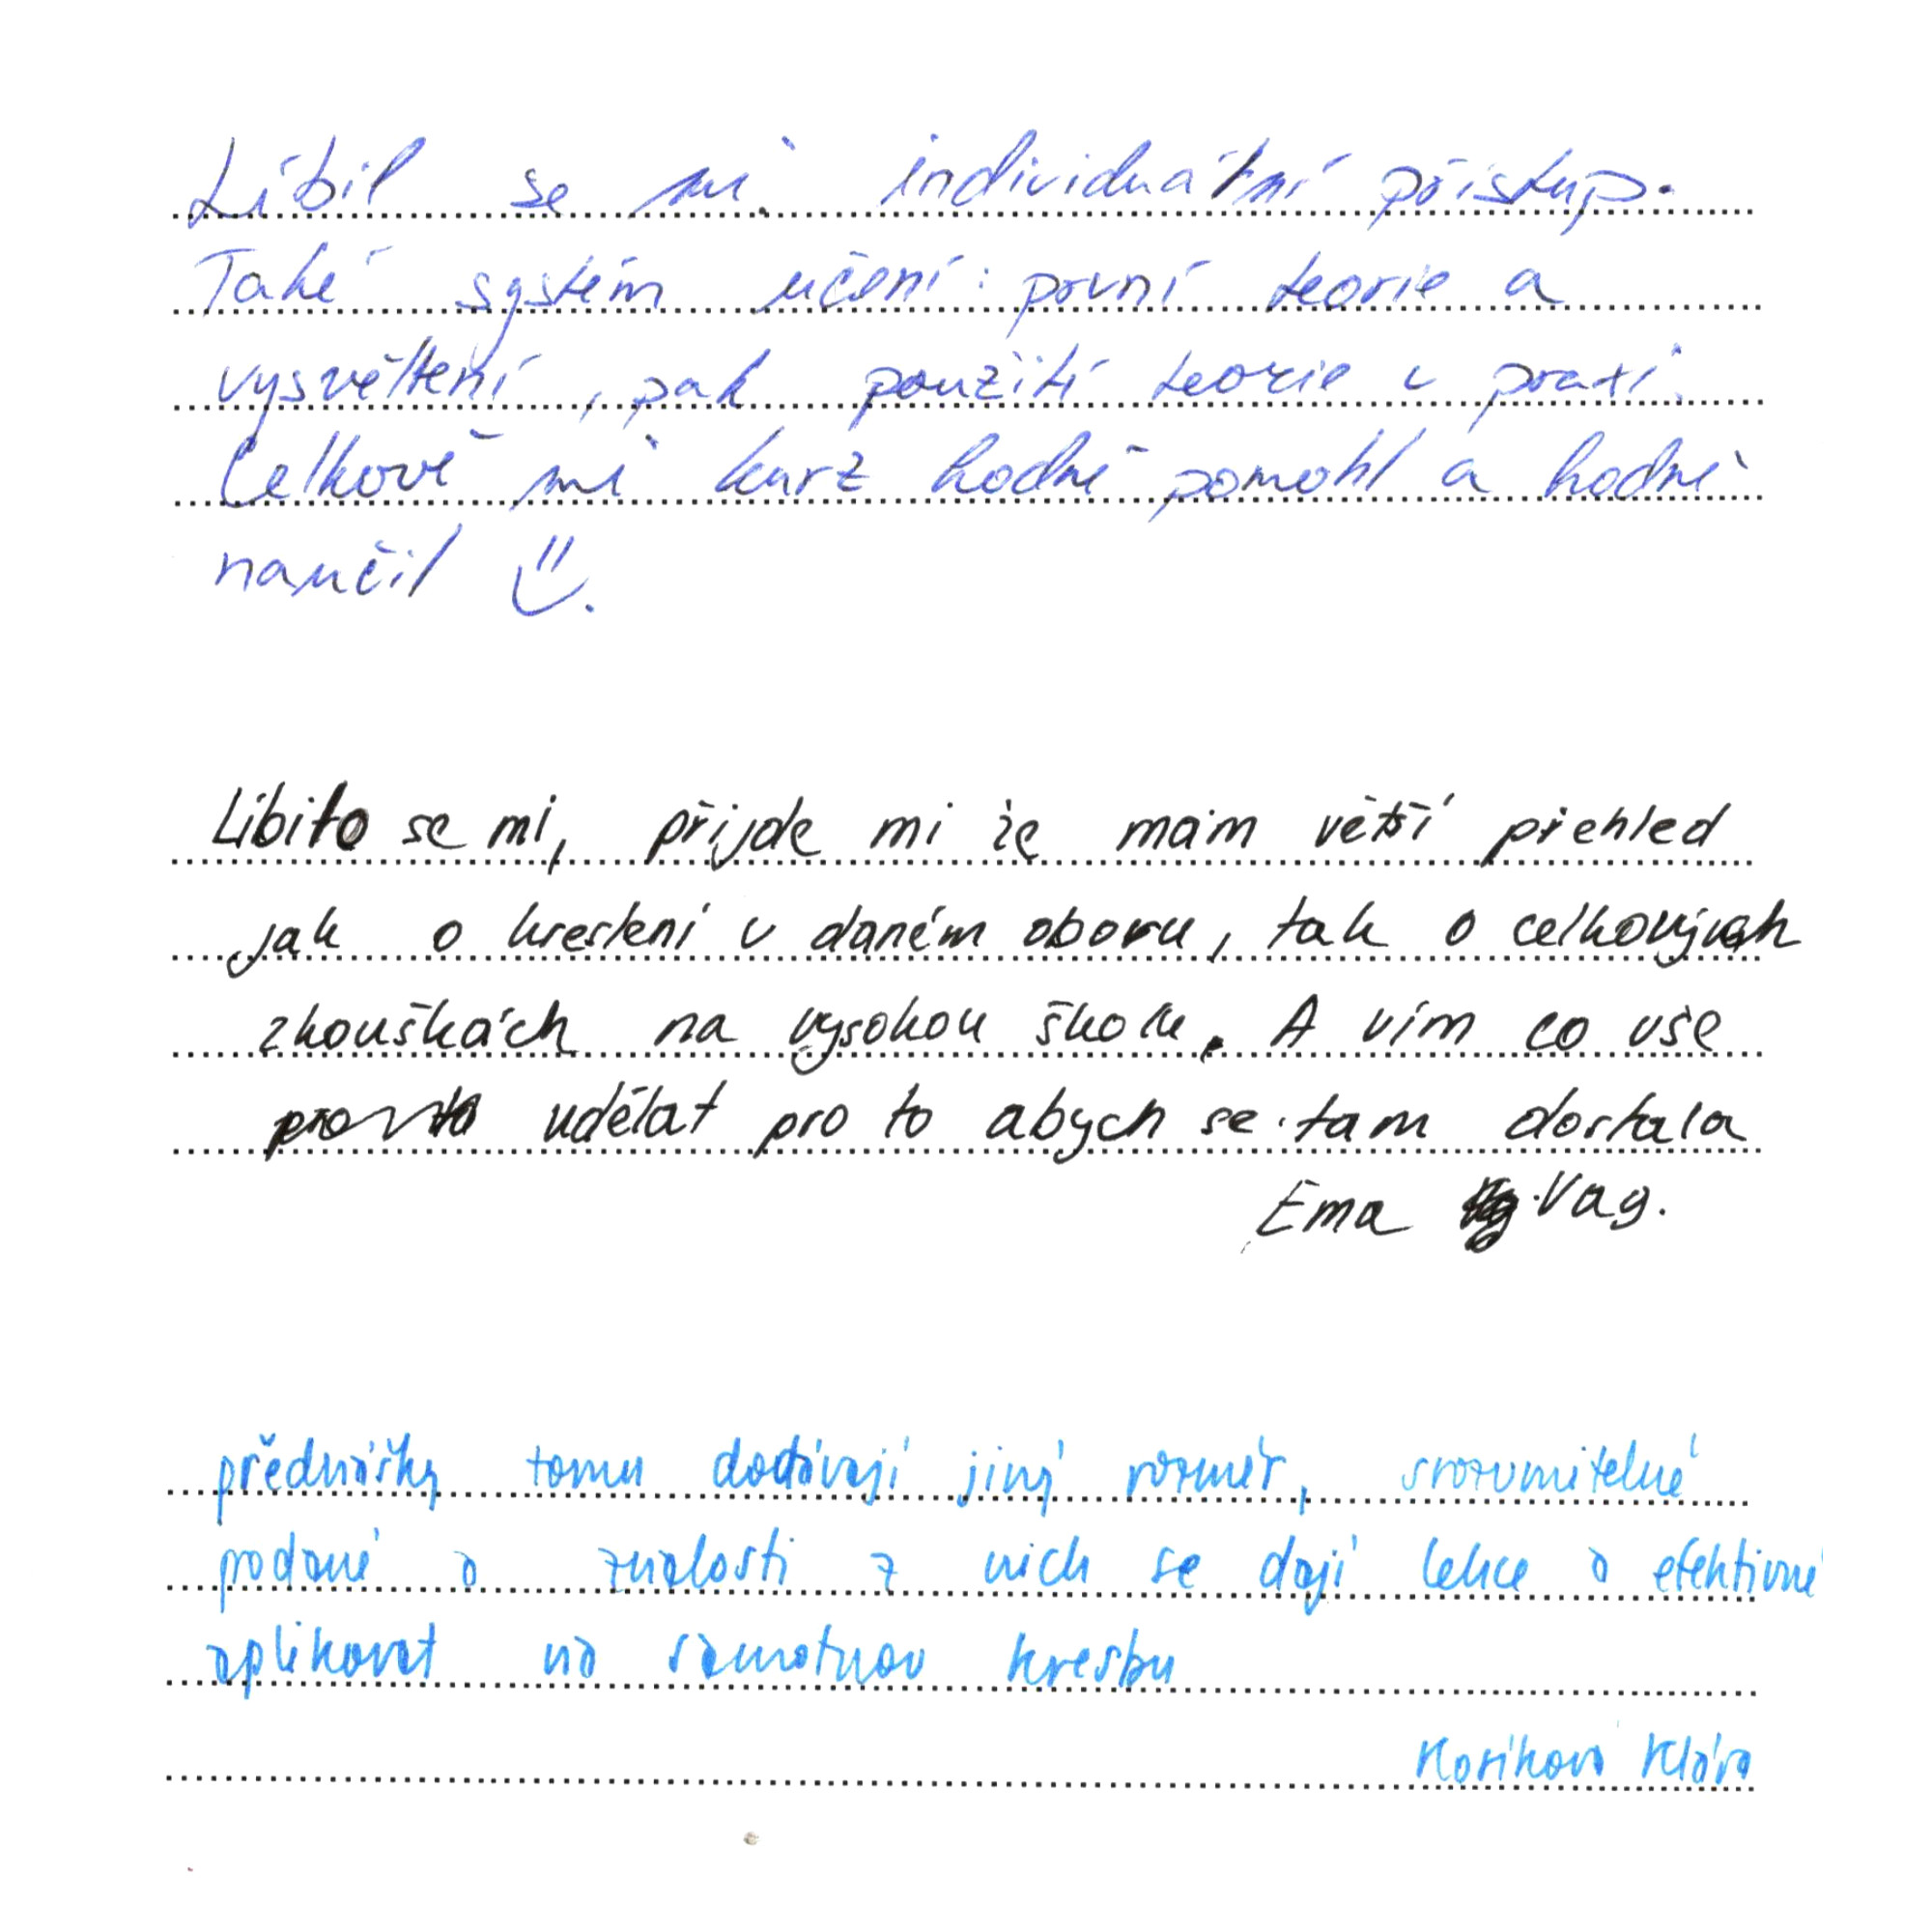 Líbil se mi individuální přístup.
Také systém učení: první teorie a
vysvětlení, pak použití teorie v praxi.
Celkově mi kurz hodně pomohl a hodně
naučil
Líbilo se mi, přijde mi že mám větší přehled
jak o kreslení v daném oboru, tak o celkových
zkouškách na vysokou školu. A vím co vše
udělat pro to abych se tam dostala
Ema Vag.
přednášky tomu dodávají jiný rozměr, srozumitelné
podané a znalosti z nich se dají lehce a efektivně
aplikovat na samotnou kresbu
Kosíková Klára